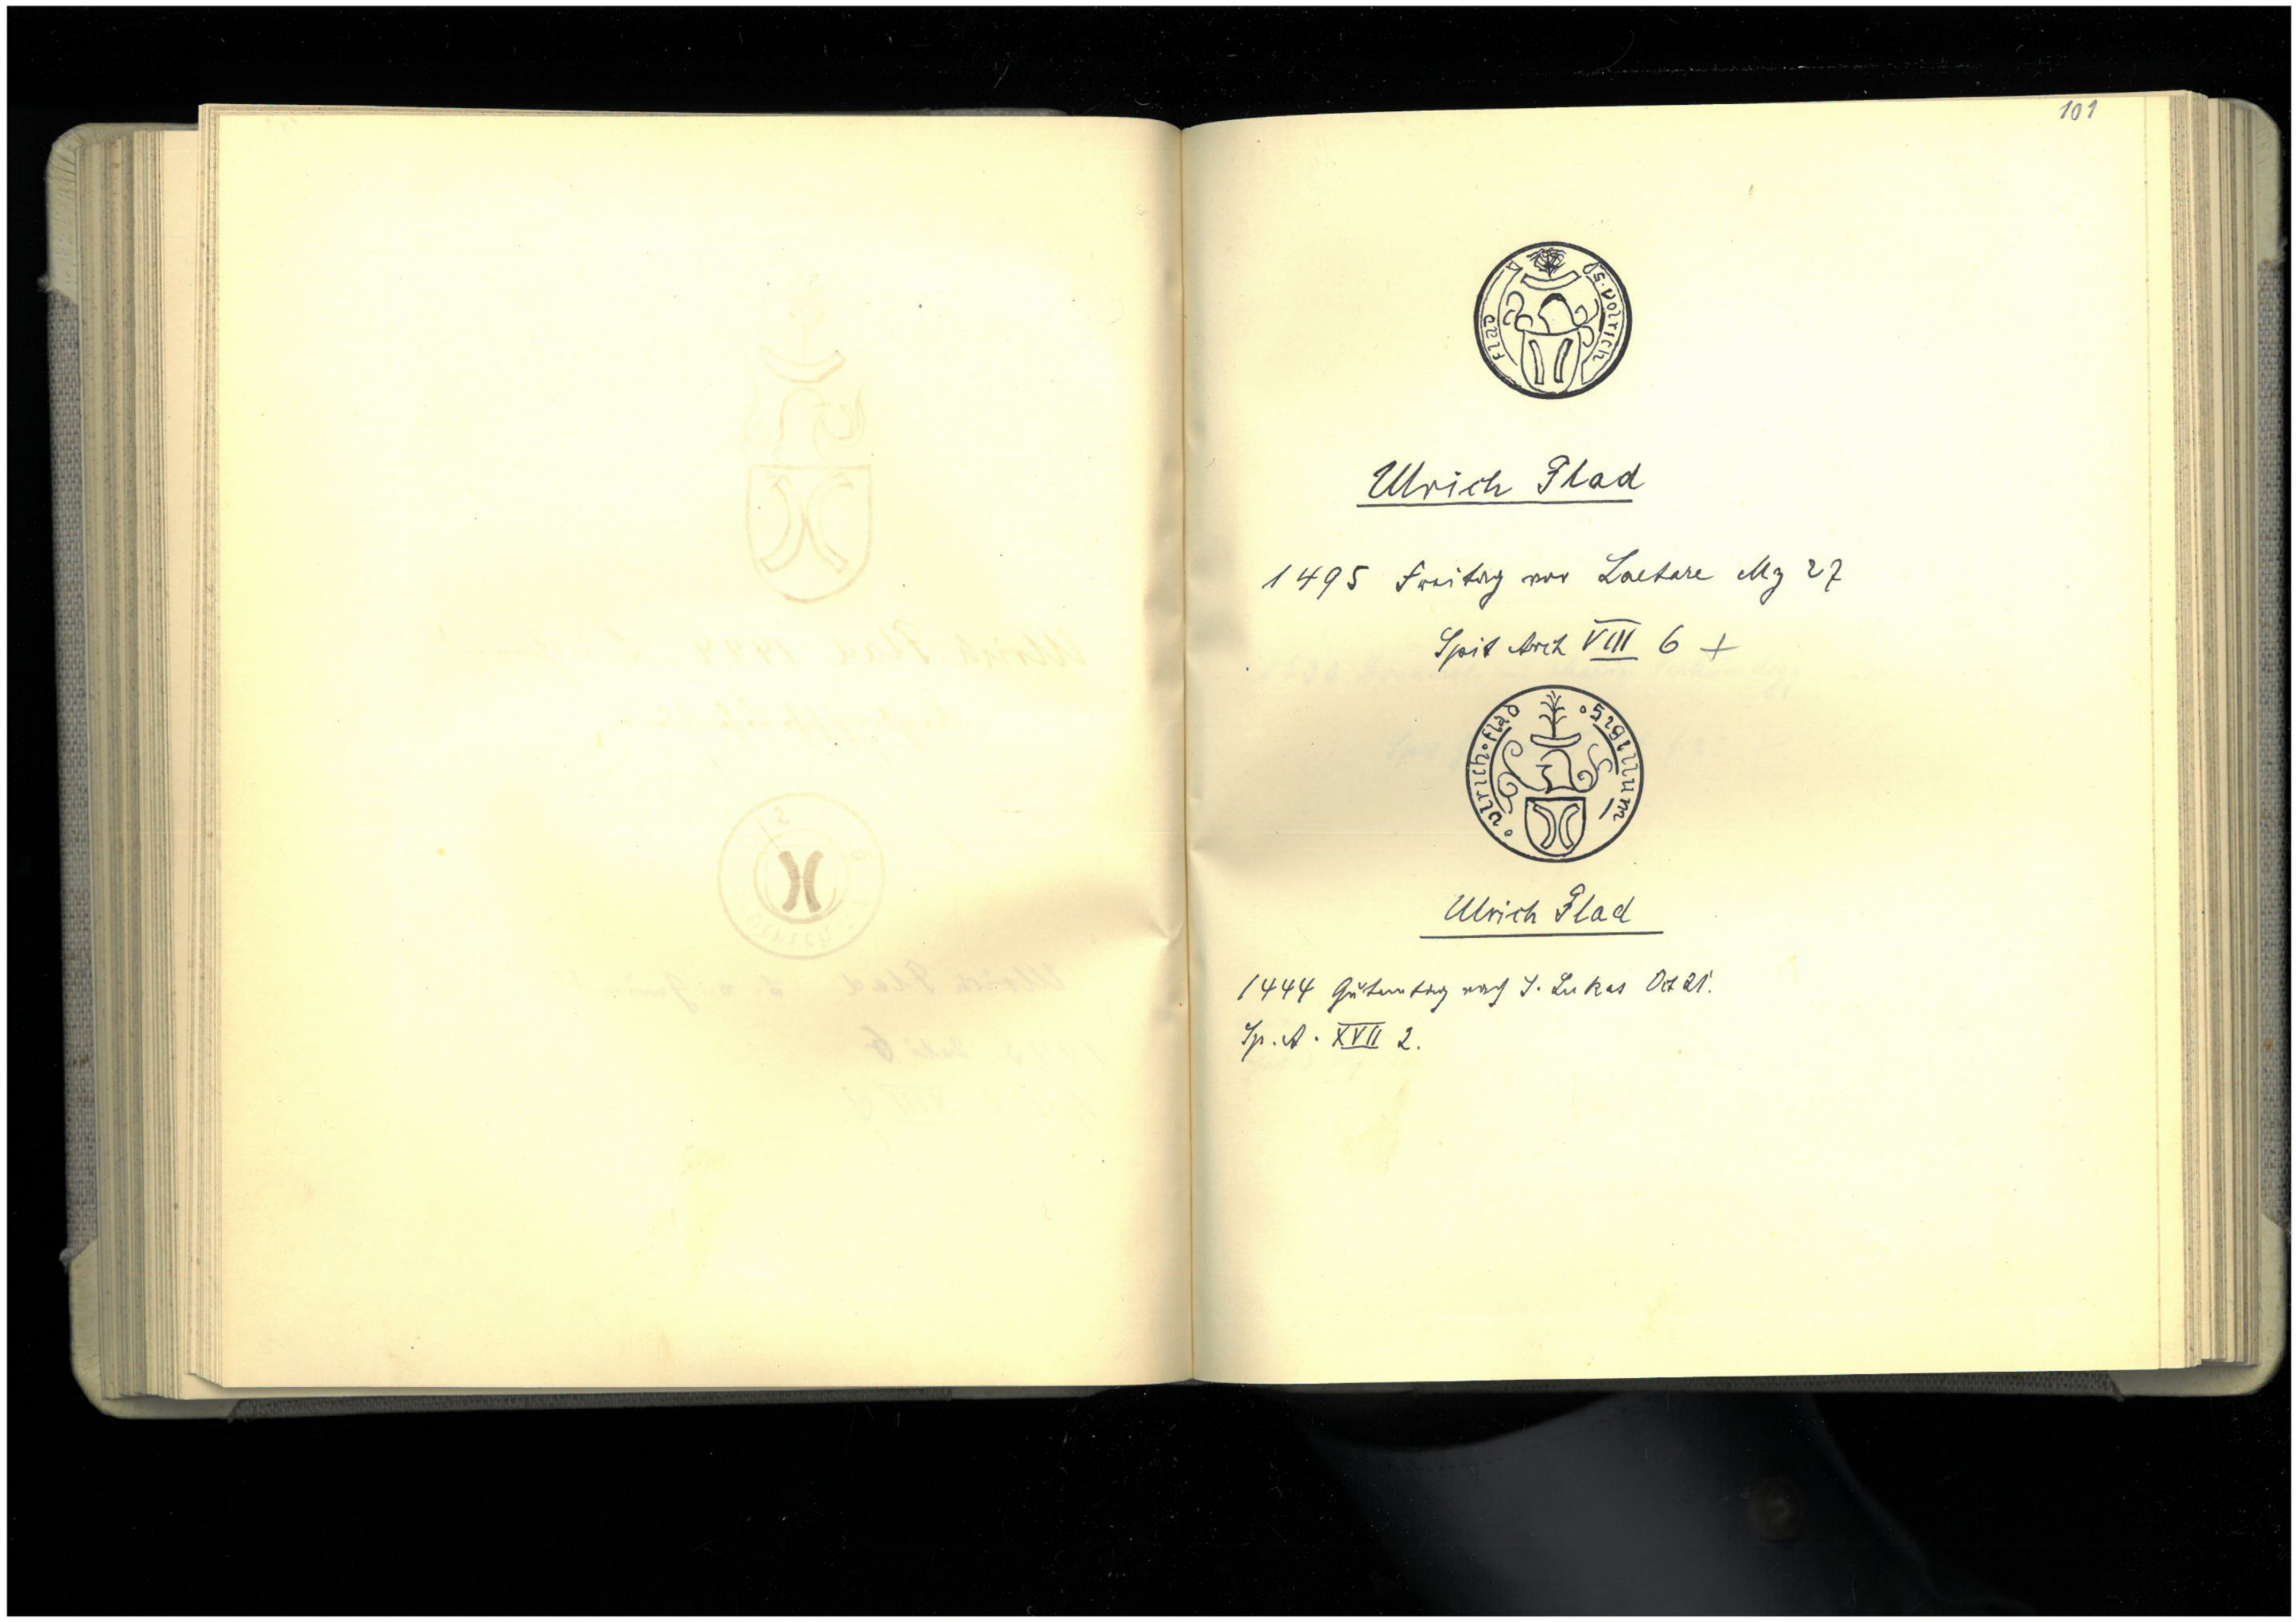 101
S. Volrich Flad
Ulrich Flad
1495 Freitag vor Laetare Mz 27
Spit Arch VIII 6 +
Sigillum Ulrich Flad
Ulrich Flad
1444 Gutentag nach S. Lukas Oct 21.
Sp. A. XVII 2.